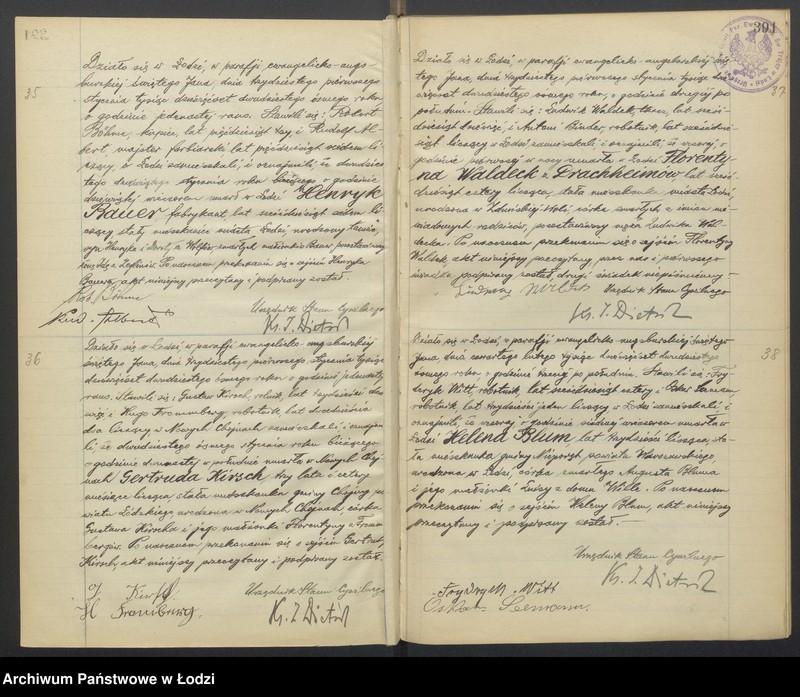 122
35
Działo się w Łodzi, w parafji ewangelicko-augs-
burskiej świętego Jana, dnia trzydziestego pierwszego
stycznia tysiąc dziewięćset dwudziestego ósmego roku,
o godzinie jedenastej rano. Stawili się: Robert
Böhme, kupiec, lat pięćdziesiąt trzy i Rudolf Al-
bert, majster farbiarski lat pięćdziesiąt siedem li-
czący, w Łodzi zamieszkali, i oznajmili, że dwudzies-
tego dziewiątego stycznia roku bieżącego o godzinie
wieczorem zmarł w Łodzi Henryk
Bauer fabrykant, lat sześćdziesiąt siedem li-
czący stały mieszkaniec miasta Łodzi, urodzony
syn Henryka i zmarłych małżonków Bauer, pozostawiwszy
żonę Po naocznem przekonaniu się o zejściu Henryka
Bauera, akt niniejszy przeczytany i podpisany został.
Rob. Böhme
Urzędnik Stanu Cywilnego
Rud. Albert
Ks. J. Dietrich
36
Działo się w Łodzi, w parafji ewangelicko-augsburskiej
świętego Jana, dnia trzydziestego pierwszego stycznia tysiąc
dziewięćset dwudziestego ósmego roku o godzinie jedenastej
rano. Stawili się: Gustaw Kirsch, rolnik, lat trzydzieści
i Hugo Frommberg, robotnik, lat dwadzieścia
dwa liczący w Nowych Chojnach zamieszkali i oznajmi-
li, że dwudziestego ósmego stycznia roku bieżącego
o godzinie dwunastej w południe zmarła w Nowych Choj-
nach Gertruda Kirsch trzy lata i cztery
miesiące licząca stała mieszkanka gminy Chojny po-
wiatu Łódzkiego urodzona w Nowych Chojnach córka
Gustawa Kirscha i jego małżonki Florentyny z From-
bergów. Po naocznem przekonaniu się o zejściu Gertrudy
Kirsch, akt niniejszy przeczytany i podpisany został.
G. Kirsch
Urzędnik Stanu Cywilnego
H Ks. J. Dietrich
391
37
Działo się w Łodzi, w parafji ewangelicko-augsburskiej świę-
tego Jana, dnia trzydziestego pierwszego stycznia tysiąc dzie-
więćset dwudziestego ósmego roku, o godzinie drugiej po
południu. Stawili się: Ludwik Waldek, tkacz, lat sześć-
dziesiąt i Antoni Binder, robotnik, lat sześćdzie-
siąt liczący w Łodzi zamieszkali i oznajmili, że wczoraj, o
godzinie pierwszej w nocy zmarła w Łodzi Florenty-
na Waldeck z Drachheimów lat sześć-
dziesiąt cztery licząca, stała mieszkanka miasta Łodzi,
urodzona w Zduńskiej-Woli, córka zmarłych z imion nie-
wiadomych rodziców, pozostawiwszy męża Ludwika Wal-
decka. Po naocznem przekonaniu się o zejściu Florentyny
Waldek, akt niniejszy przeczytany przez nas i pierwszego
świadka podpisany został, drugi świadek niepiśmienny.
Urzędnik Stanu Cywilnego
Ks. J. Dietrich
38
Działo się w Łodzi, w parafji ewangelicko-augsburskiej świętego
Jana, dnia czwartego lutego tysiąc dziewięćset dwudziestego
ósmego roku o godzinie trzeciej po południu. Stawili się: Fry-
deryk Witt, robotnik, lat siedemdziesiąt cztery i Oskar
robotnik, lat trzydzieści jeden liczący w Łodzi zamieszkali, i
oznajmili, że wczoraj, o godzinie siódmej wieczorem zmarła w
Łodzi Helena Blum, lat trzydzieści licząca, sta-
ła mieszkanka gminy Nieporęt, powiatu Warszawskiego
urodzona w Łodzi, córka zmarłego Augusta Bluma
i jego małżonki Luizy z domu Po naocznem
przekonaniu się o zejściu Heleny Blum, akt niniejszy
przeczytany i podpisany został.
Urzędnik Stanu Cywilnego
Ks. J. Dietrich
Frydrych Witt
Oskar
Archiwum Państwowe w Łodzi